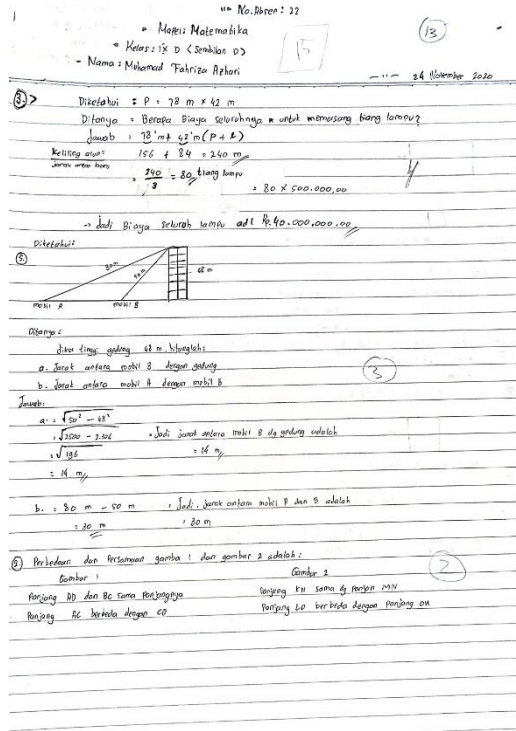 No. Absen : 22
Mapel : Matematika
13
Kelas : IX D (Sembilan D)
15
- Nama : Muhamad Fahriza Azhari
24 November 2020
3. > Diketahui : P = 78 m x 42 m
Ditanya = Berapa Biaya seluruhnya untuk memasang tiang lampu?
Jawab : 78 m + 42 m (P + l)
Keliling 156 + 84 = 240 m
Jarak antar tiang
= 240/3 = 80 tiang lampu
= 80 x 500.000,00
4
→ Jadi Biaya seluruh lampu adl Rp. 40.000.000,00
Diketahui :
80 m
50 m
48 m
mobil A mobil B
Ditanya :
Jika tinggi gedung 48 m, hitunglah :
a. Jarak antara mobil B dengan gedung
3
b. Jarak antara mobil A dengan mobil B
Jawab :
a. = √50² - 48²
= √2500 - 2.304 • Jadi jarak antara mobil B dg gedung adalah
= √196 = 14 m
= 14 m
b. = 80 m - 50 m • Jadi, jarak antara mobil A dan B adalah
= 30 m = 30 m
Perbedaan dan Persamaan gambar 1 dan gambar 2 adalah :
2
Gambar 1 Gambar 2
Panjang AD dan BC sama Panjangnya Panjang KN sama dg Panjang MN
Panjang AC berbeda dengan CD Panjang LO berbeda dengan panjang OM